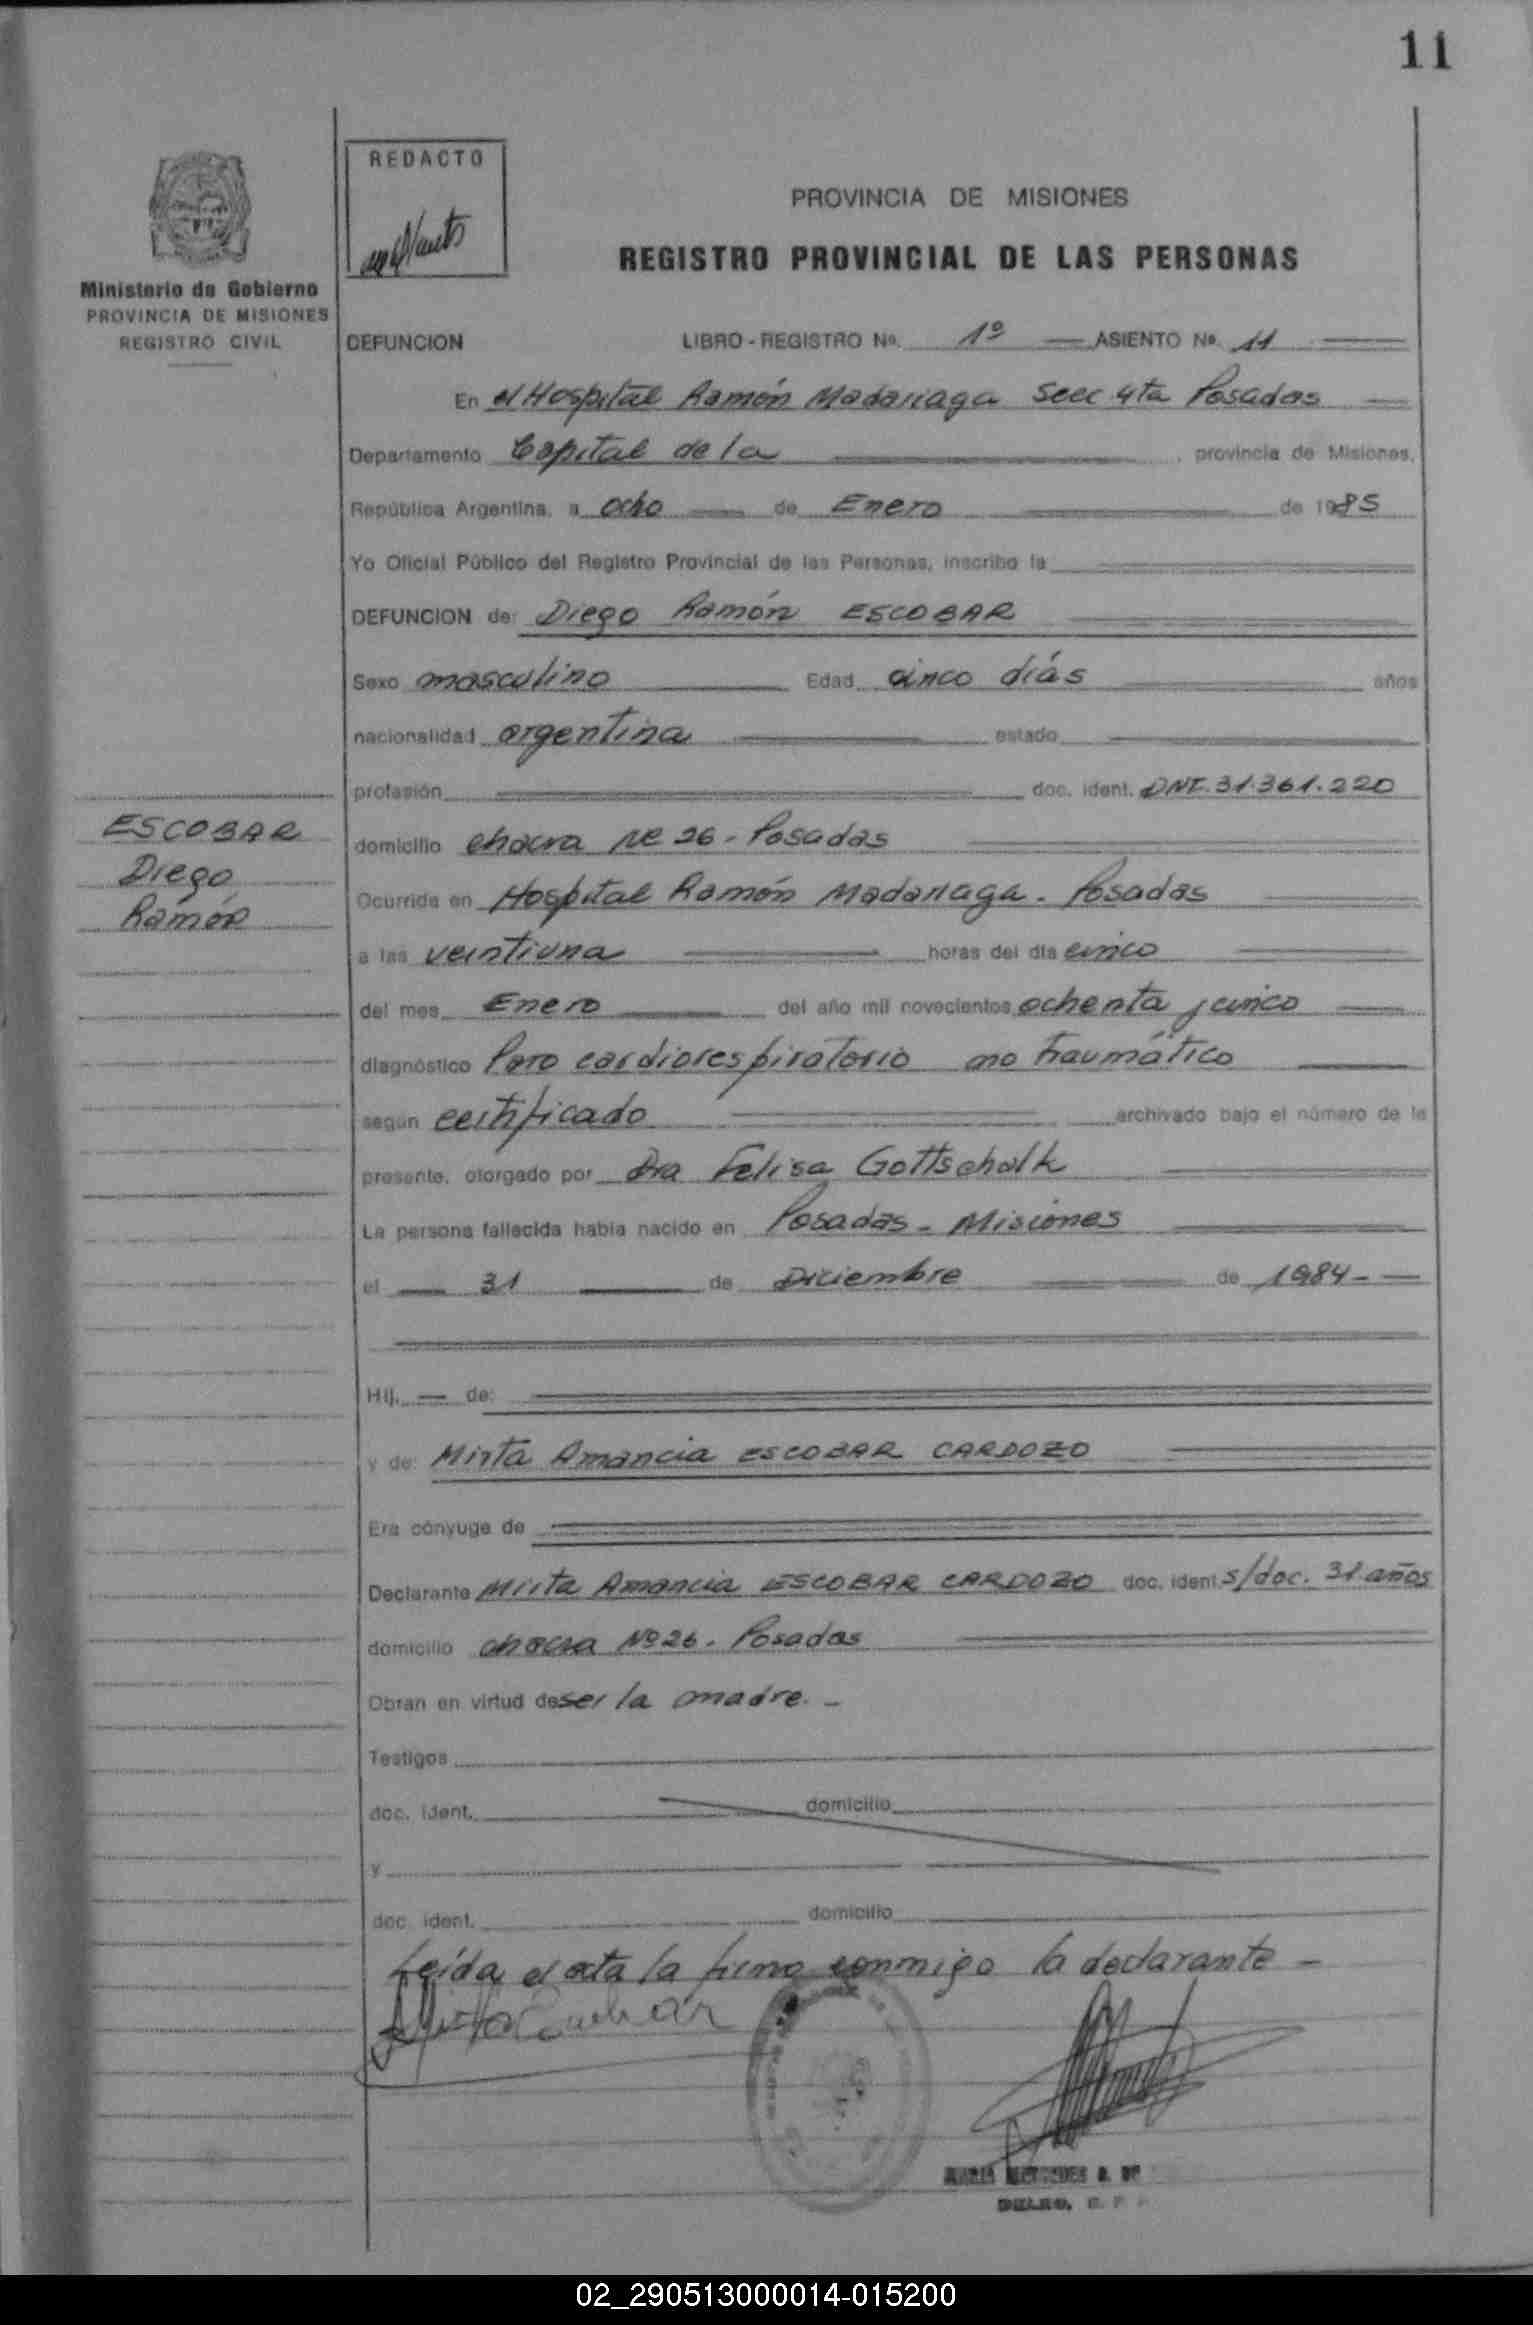 11
REDACTO
Ministerio de Gobierno
PROVINCIA DE MISIONES
REGISTRO CIVIL
PROVINCIA DE MISIONES
REGISTRO PROVINCIAL DE LAS PERSONAS
DEFUNCION LIBRO - REGISTRO No. 1º ASIENTO No. 11
En el Hospital Ramón Madariaga Secc 4ta Posadas
Departamento Capital de la provincia de Misiones,
República Argentina, a ocho de Enero de 1985
Yo Oficial Público del Registro Provincial de las Personas, inscribo la
DEFUNCION de: Diego Ramón ESCOBAR
Sexo masculino Edad cinco días años
nacionalidad argentina estado
profesión doc. ident. DNI. 31.361.220
ESCOBAR
Diego
Ramón
domicilio chacra Nº 26 - Posadas
Ocurrida en Hospital Ramón Madariaga - Posadas
a las veintiuna horas del día cinco
del mes Enero del año mil novecientos ochenta y cinco
diagnóstico Paro cardiorespiratorio no traumático
según certificado archivado bajo el número de la
presente, otorgado por Dra Felisa Gottschalk
La persona fallecida había nacido en Posadas - Misiones
el 31 de Diciembre de 1984 -
Hij. de:
y de: Mirta Amancia ESCOBAR CARDOZO
Era cónyuge de
Declarante Mirta Amancia ESCOBAR CARDOZO doc. ident s/doc. 31 años
domicilio chacra Nº 26 - Posadas
Obran en virtud de ser la madre. -
Testigos
doc. ident. domicilio
y
doc. ident. domicilio
Leída el acta la firma conmigo la declarante -
02_290513000014-015200